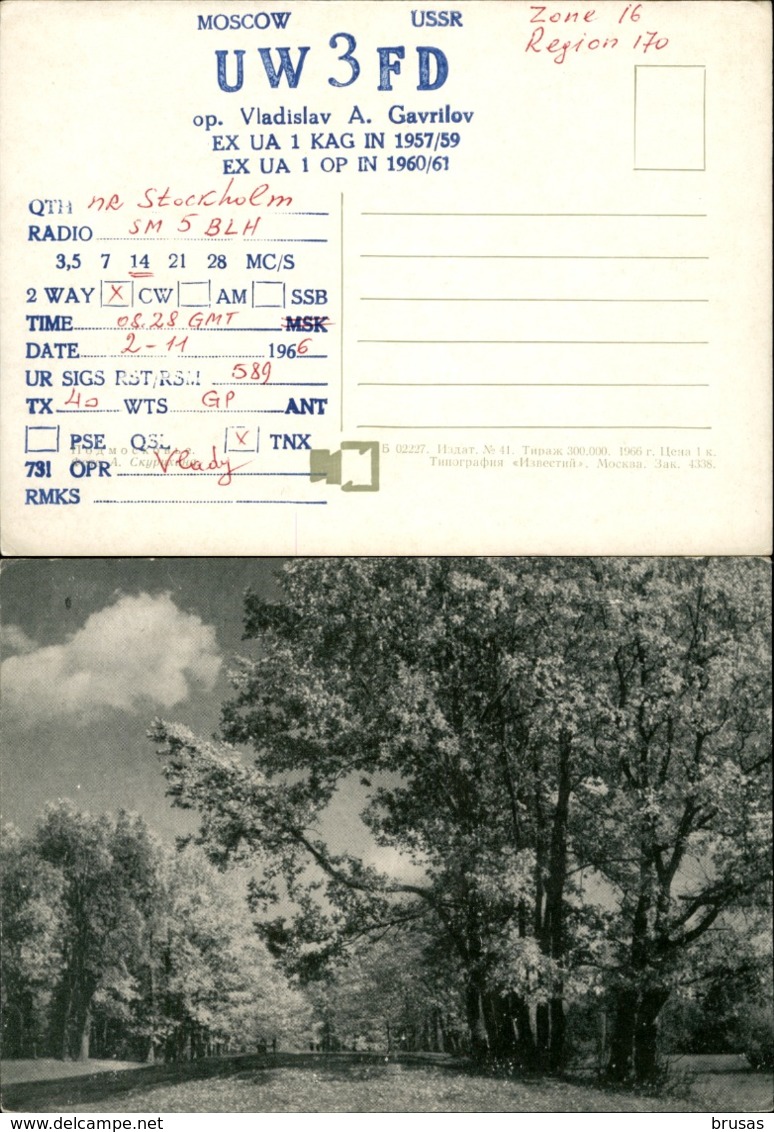 MOSCOW USSR
Zone 16
Region 170
UW3FD
op. Vladislav A. Gavrilov
EX UA 1 KAG IN 1957/59
EX UA 1 OP IN 1960/61
QTH nr Stockholm
RADIO SM 5 BLH
3,5 7 14 21 28 MC/S
2 WAY X CW AM SSB
TIME 08.28 GMT MSK
DATE 2-11 1966
UR SIGS RST/RSM 589
TX 40 WTS GP ANT
PSE QSL X TNX
Подмосковье.
731 OPR Vlady
RMKS
Б 02227. Издат. № 41. Тираж 300.000. 1966 г. Цена 1 к.
Типография «Известий». Москва. Зак. 4338.
brusas